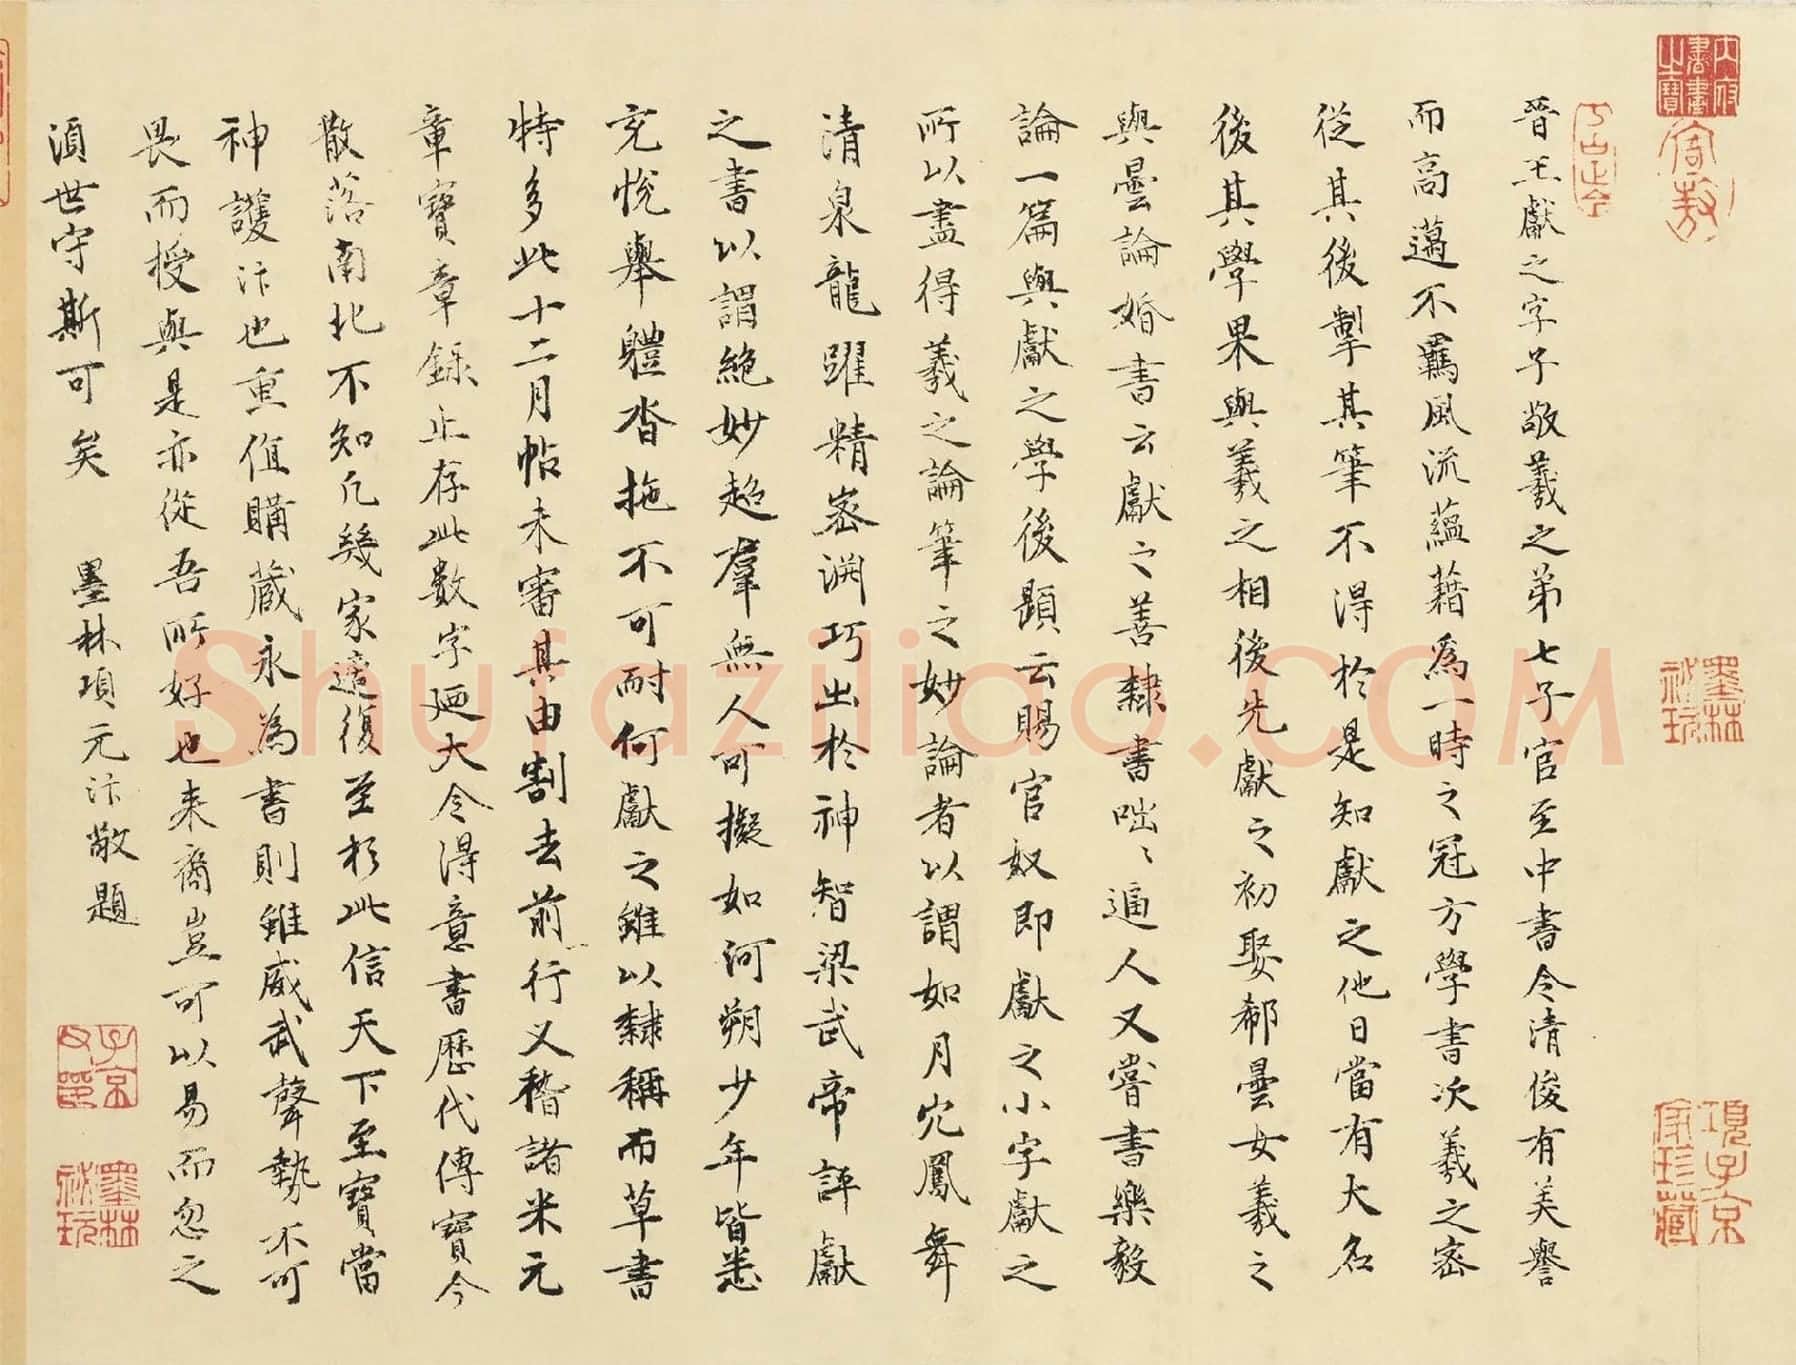 晉王獻之字子敬羲之弟七子官至中書令清俊有美譽
而高邁不羈風流蘊藉爲一時之冠方學書次羲之密
從其後掣其筆不得於是知獻之他日當有大名
後其學果與羲之相後先獻之初娶郗曇女羲之
與曇論婚書云獻之善隸書咄〻逼人又嘗書樂毅
論一篇與獻之學後題云賜官奴即獻之小字獻之
所以盡得羲之論筆之妙論者以謂如月穴鳳舞
清泉龍躍精密淵巧出於神智梁武帝評獻
之書以謂絶妙超羣無人可擬如河朔少年皆悉
充悅舉體沓拖不可耐何獻之雖以隸稱而草書
特多此十二月帖未審其由割去前行又稽諸米元
章寶章録止存此數字廼大令得意書歷代傳寶今
散落南北不知凡幾家適復至於此信天下至寶當
神護汴也重值購藏永為書則雖威武聲勢不可
畏而授與是亦從吾所好也来裔豈可以易而忽之
湏世守斯可矣 墨林項元汴敬題
内府書畫之寶
墨林祕玩
項子京家珍藏
子京父印
墨林祕玩
Shufaziliao.COM